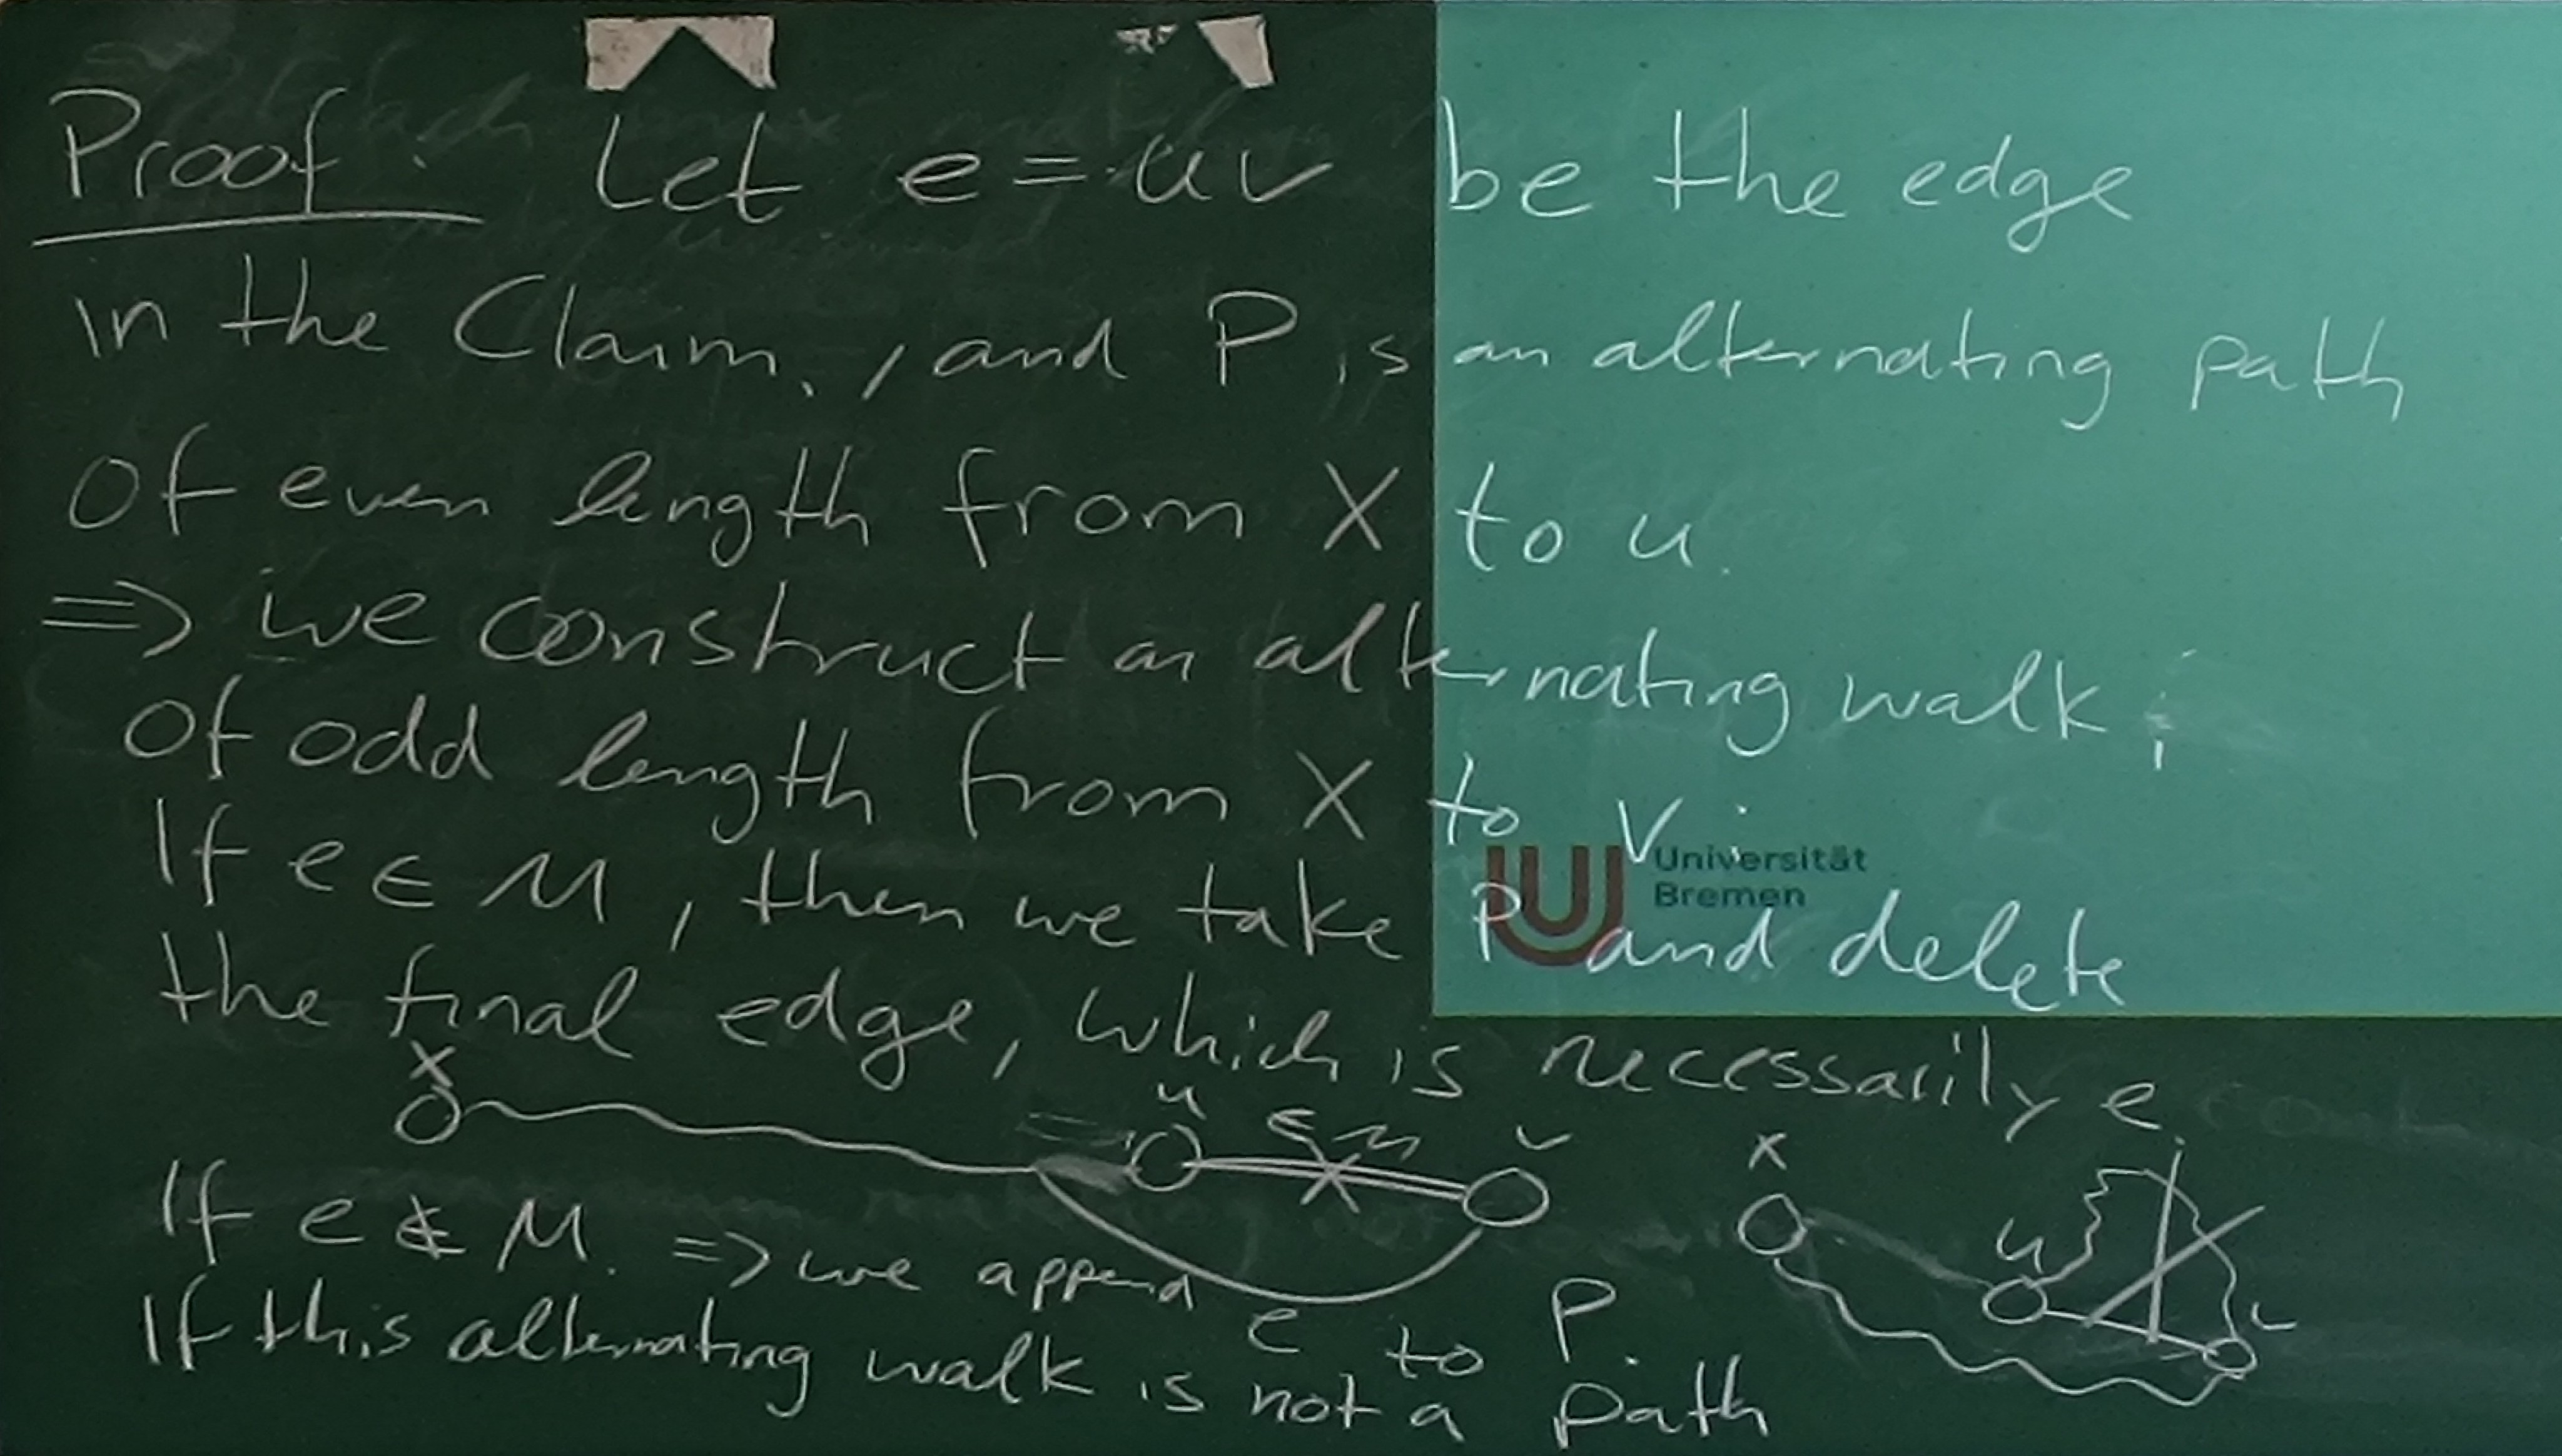 Proof: Let e = uv be the edge
in the Claim, and P is an alternating path
of even length from X to u.
=> we construct an alternating walk
of odd length from X to v:
Universität
Bremen
If e ∈ M, then we take P and delete
the final edge, which is necessarily e.
x
u ∈ M v
x
u
v
If e ∉ M. => we append e to P.
If this alternating walk is not a path